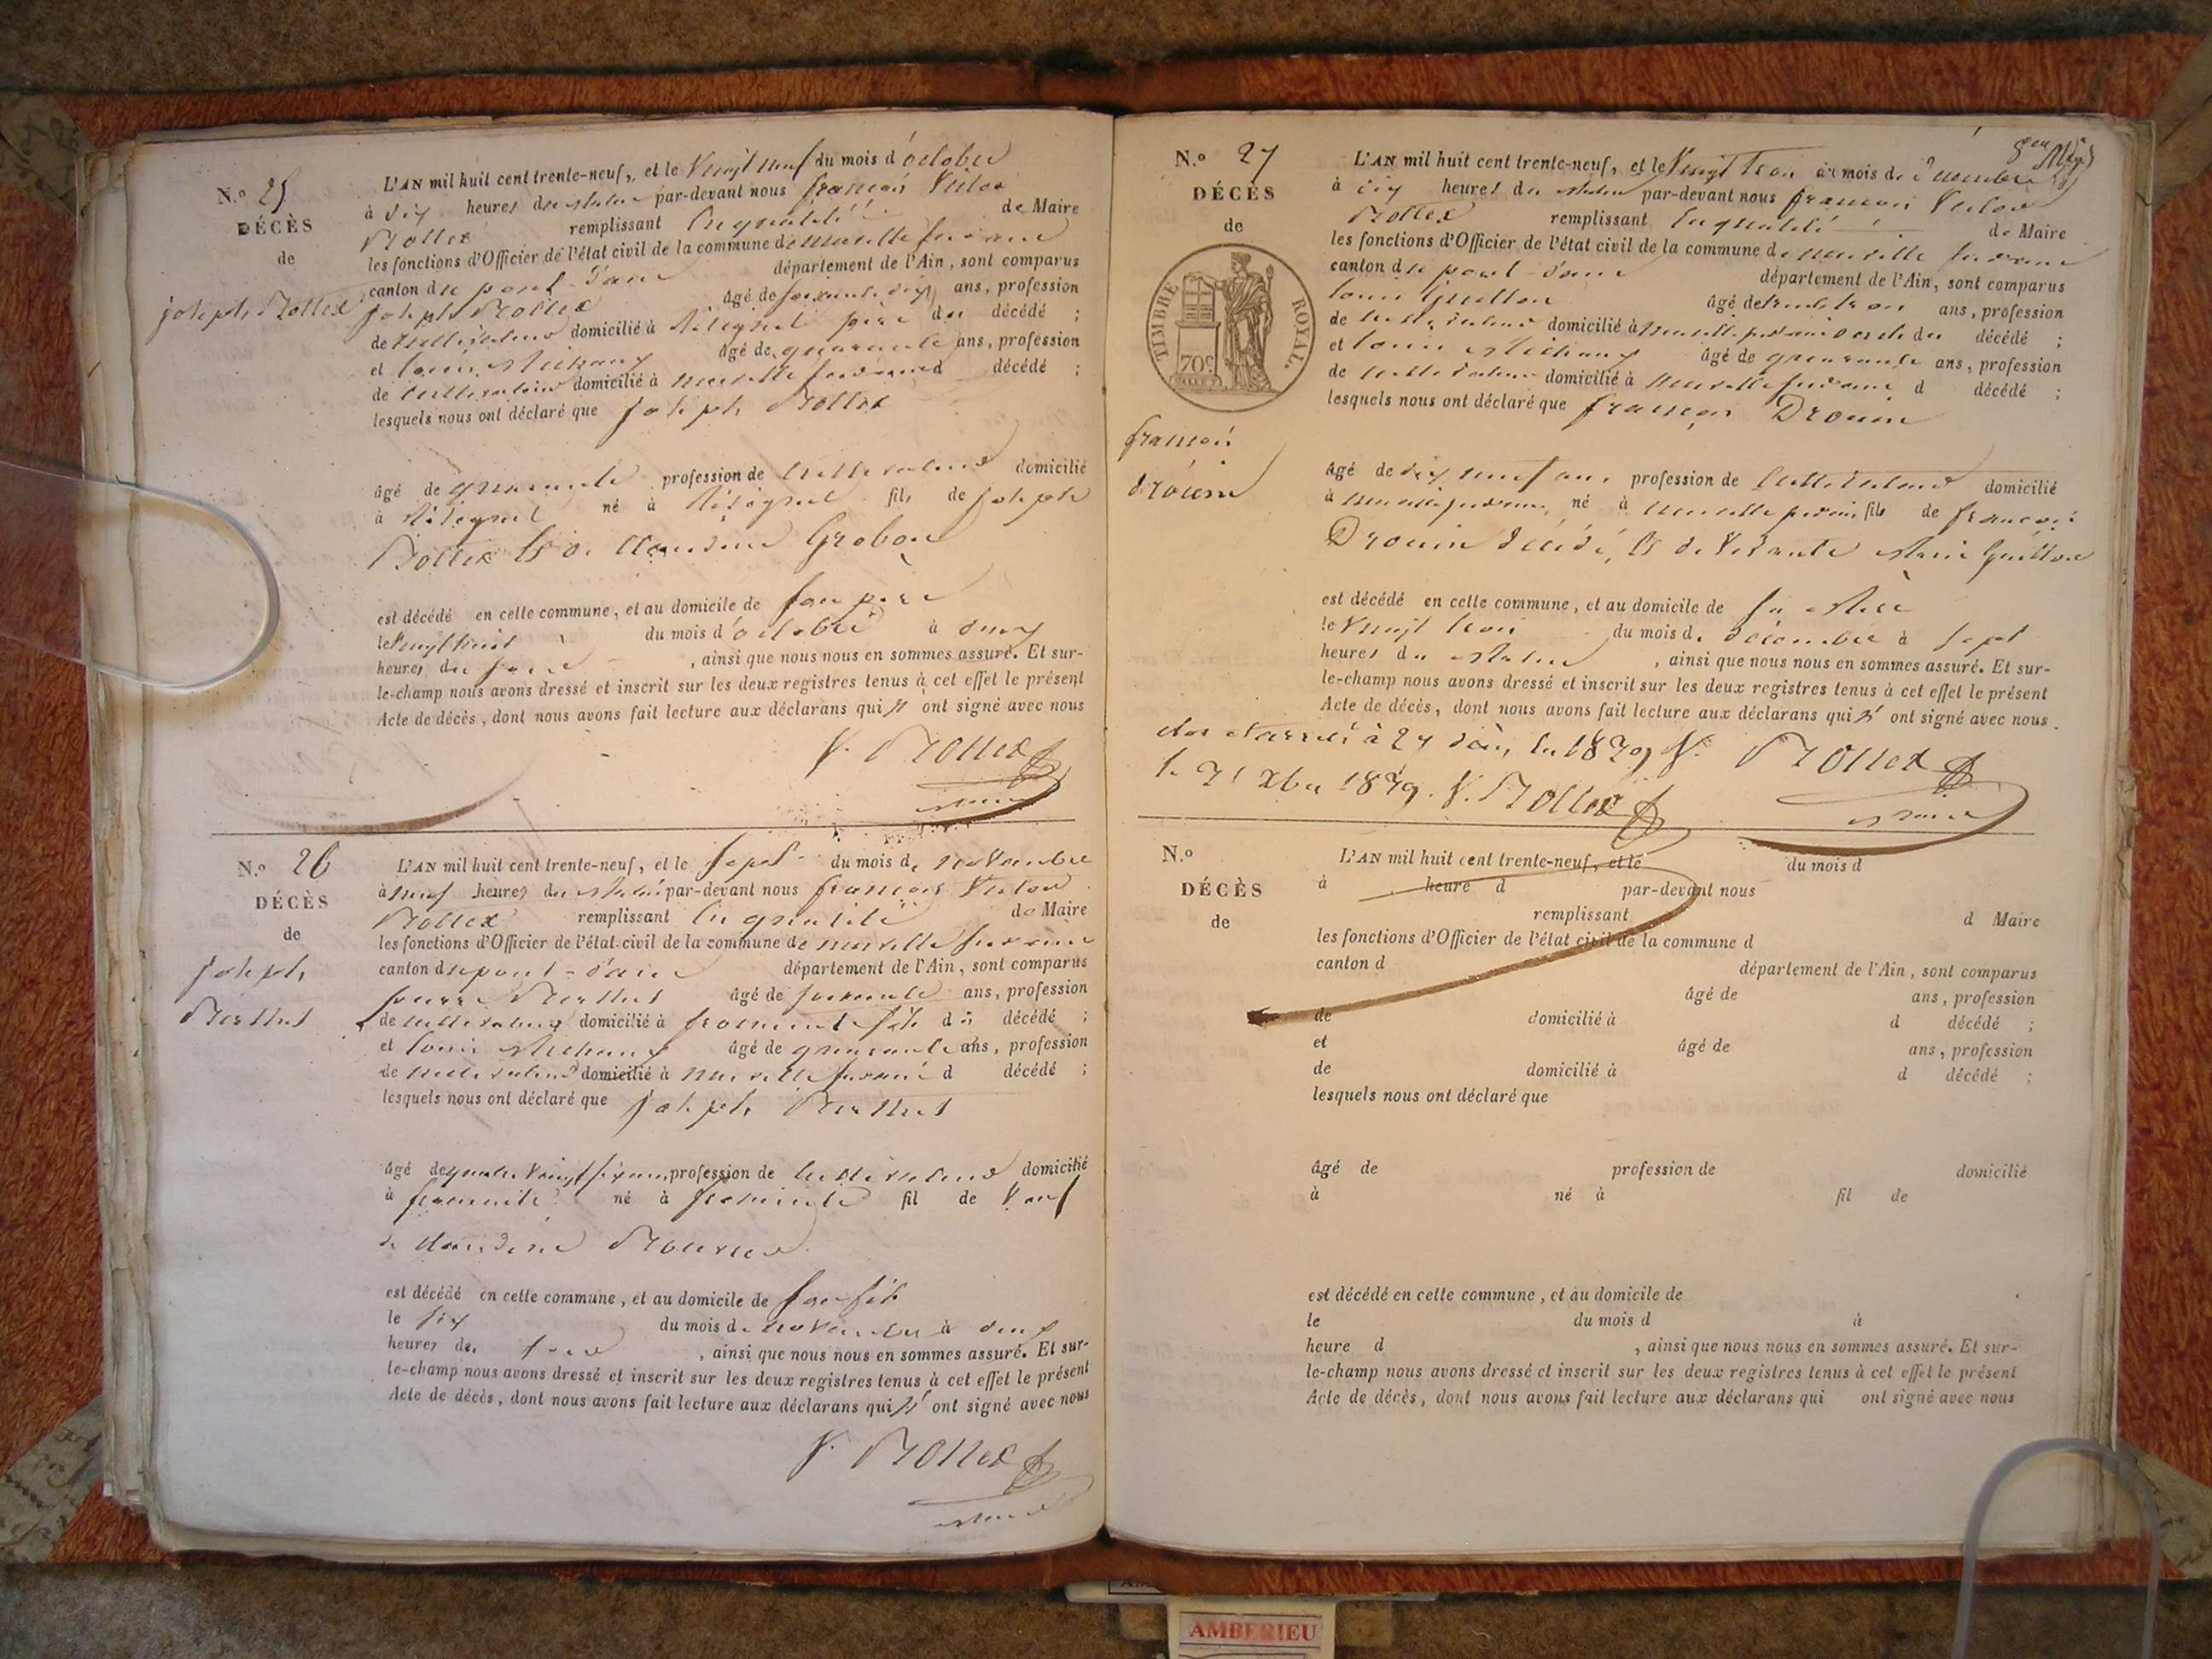 N.º 25
DÉCÈS
de
joseph Rollet
L'AN mil huit cent trente-neuf, et le Vingt neuf du mois d'octobre
à dix heures du matin par-devant nous françois Victor
Rollet remplissant en qualité de Maire
les fonctions d'Officier de l'état civil de la commune de neuville sur ain
canton de pont-d'ain département de l'Ain, sont comparus
joseph Rollet âgé de soixante dix ans, profession
de cultivateur domicilié à père du décédé ;
et louis Michaux âgé de quarante ans, profession
de cultivateur domicilié à neuville sur ain d décédé ;
lesquels nous ont déclaré que joseph Rollet
âgé de quarante profession de cultivateur domicilié
à né à fils de joseph
Rollet & de claudine Grobon
est décédé en cette commune, et au domicile de son père
le Vingt huit du mois d'octobre à onze
heures du soir , ainsi que nous nous en sommes assuré. Et sur-
le-champ nous avons dressé et inscrit sur les deux registres tenus à cet effet le présent
Acte de décès, dont nous avons fait lecture aux déclarans qui n' ont signé avec nous
V. Rollet
maire
N.º 26
DÉCÈS
de
joseph
Berthet
L'AN mil huit cent trente-neuf, et le sept du mois de novembre
à neuf heures du matin par-devant nous françois Victor
Rollet remplissant en qualité de Maire
les fonctions d'Officier de l'état civil de la commune de neuville sur ain
canton de pont-d'ain département de l'Ain, sont comparus
pierre Berthet âgé de soixante ans, profession
de cultivateur domicilié à fromente fils du décédé ;
et louis Michaux âgé de quarante ans, profession
de cultivateur domicilié à neuville sur ain d décédé ;
lesquels nous ont déclaré que joseph Berthet
âgé de quatre vingt six ans, profession de cultivateur domicilié
à fromente né à fromente fil de Veuf
de claudine
est décédé en cette commune, et au domicile de son fils
le six du mois de novembre à onze
heures du soir , ainsi que nous nous en sommes assuré. Et sur-
le-champ nous avons dressé et inscrit sur les deux registres tenus à cet effet le présent
Acte de décès, dont nous avons fait lecture aux déclarans qui n' ont signé avec nous
V. Rollet
maire
N.º 27
DÉCÈS
de
TIMBRE ROYAL.
70c
françois
drouin
L'AN mil huit cent trente-neuf, et le Vingt trois du mois de décembre
à dix heures du matin par-devant nous françois Victor
Rollet remplissant en qualité de Maire
les fonctions d'Officier de l'état civil de la commune de neuville sur ain
canton de pont-d'ain département de l'Ain, sont comparus
louis Guillon âgé de trente trois ans, profession
de cultivateur domicilié à neuville sur ain oncle du décédé ;
et louis Michaux âgé de quarante ans, profession
de cultivateur domicilié à neuville sur ain d décédé ;
lesquels nous ont déclaré que françois Drouin
âgé de dix neuf ans, profession de cultivateur domicilié
à neuville sur ain, né à neuville sur ain, fils de françois
Drouin décédé, & de vivante Marie Guillon
est décédé en cette commune, et au domicile de sa mère
le Vingt trois du mois de décembre à sept
heures du matin , ainsi que nous nous en sommes assuré. Et sur-
le-champ nous avons dressé et inscrit sur les deux registres tenus à cet effet le présent
Acte de décès, dont nous avons fait lecture aux déclarans qui n' ont signé avec nous.
clos et arrêté à 27 décès V. Rollet
le 31 Xbre 1839. V. Rollet
maire
N.º
DÉCÈS
de
L'AN mil huit cent trente-neuf, et le du mois d
à heure d par-devant nous
remplissant d Maire
les fonctions d'Officier de l'état civil de la commune d
canton d département de l'Ain, sont comparus
âgé de ans, profession
de domicilié à d décédé ;
et âgé de ans, profession
de domicilié à d décédé ;
lesquels nous ont déclaré que
âgé de profession de domicilié
à né à fil de
est décédé en cette commune, et au domicile de
le du mois d à
heure d , ainsi que nous nous en sommes assuré. Et sur-
le-champ nous avons dressé et inscrit sur les deux registres tenus à cet effet le présent
Acte de décès, dont nous avons fait lecture aux déclarans qui ont signé avec nous
AMBERIEU